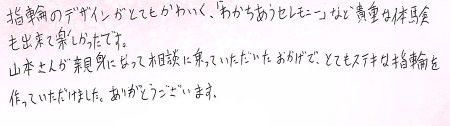 指輪のデザインがとてもかわいく、「わかちあうセレモニー」など貴重な体験
も出来て楽しかったです。
山本さんが親身になって相談に乗っていただいたおかげで、とてもステキな指輪を
作っていただけました。ありがとうございます。